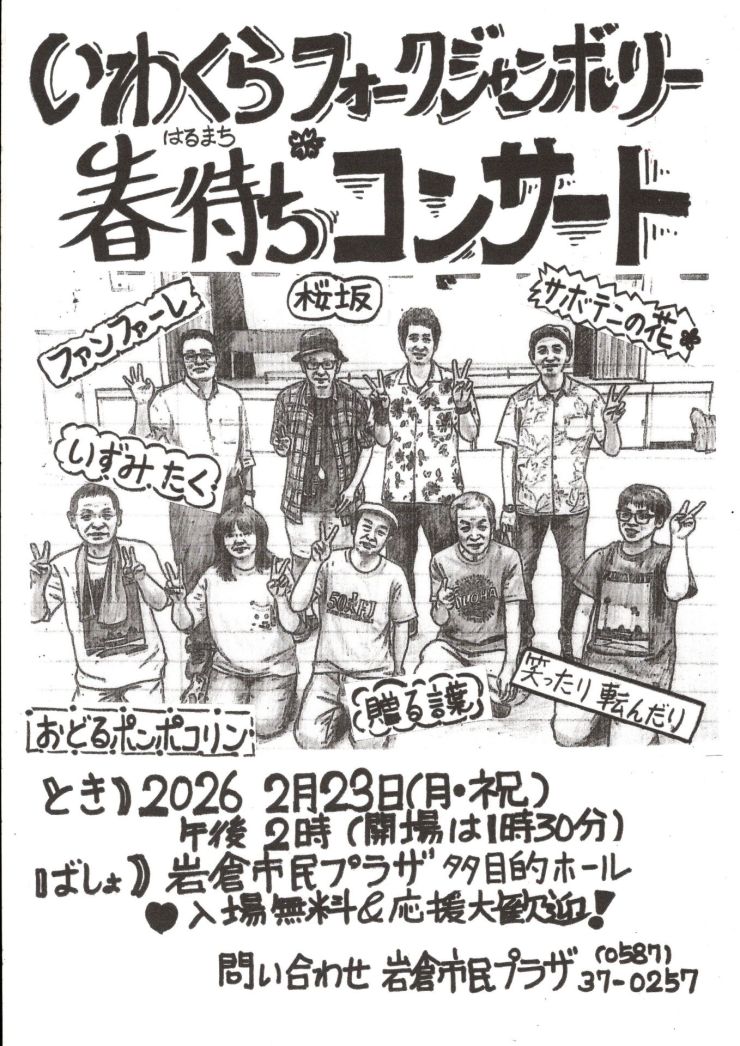 いわくらフォークジャンボリー
はるまち
春待ちコンサート
ファンファーレ
桜坂
サボテンの花
いずみたく
SURF!
ALOHA
笑ったり転んだり
贈る言葉
おどるポンポコリン
とき》2026 2月23日(月・祝)
午後 2時 (開場は1時30分)
ばしょ》岩倉市民プラザ 多目的ホール
♥入場無料&応援大歓迎!
問い合わせ 岩倉市民プラザ (0587) 37-0257